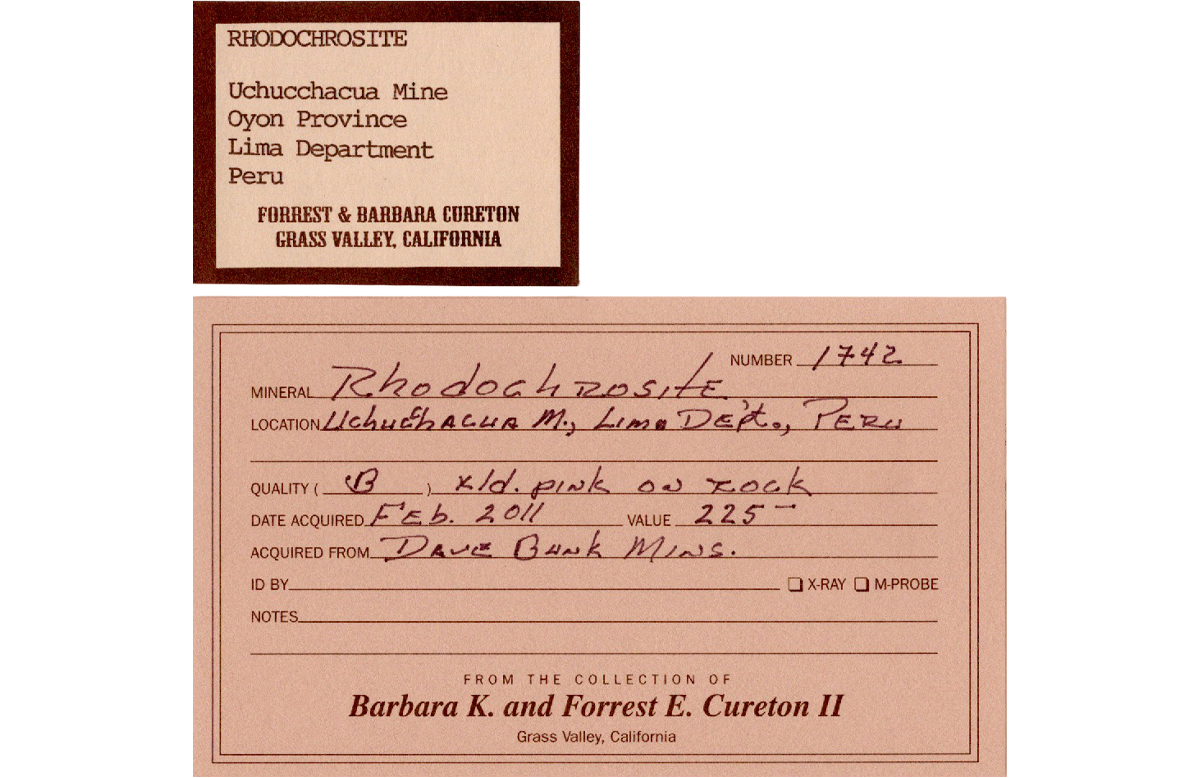 RHODOCHROSITE
Uchucchacua Mine
Oyon Province
Lima Department
Peru
FORREST & BARBARA CURETON
GRASS VALLEY, CALIFORNIA
NUMBER 1742
MINERAL Rhodochrosite
LOCATION Uchucchacua M., Lima Dep't., Peru
QUALITY ( B ) xld. pink on rock
DATE ACQUIRED Feb. 2011 VALUE 225-
ACQUIRED FROM Dave Bunk Mins.
ID BY X-RAY M-PROBE
NOTES
FROM THE COLLECTION OF
Barbara K. and Forrest E. Cureton II
Grass Valley, California